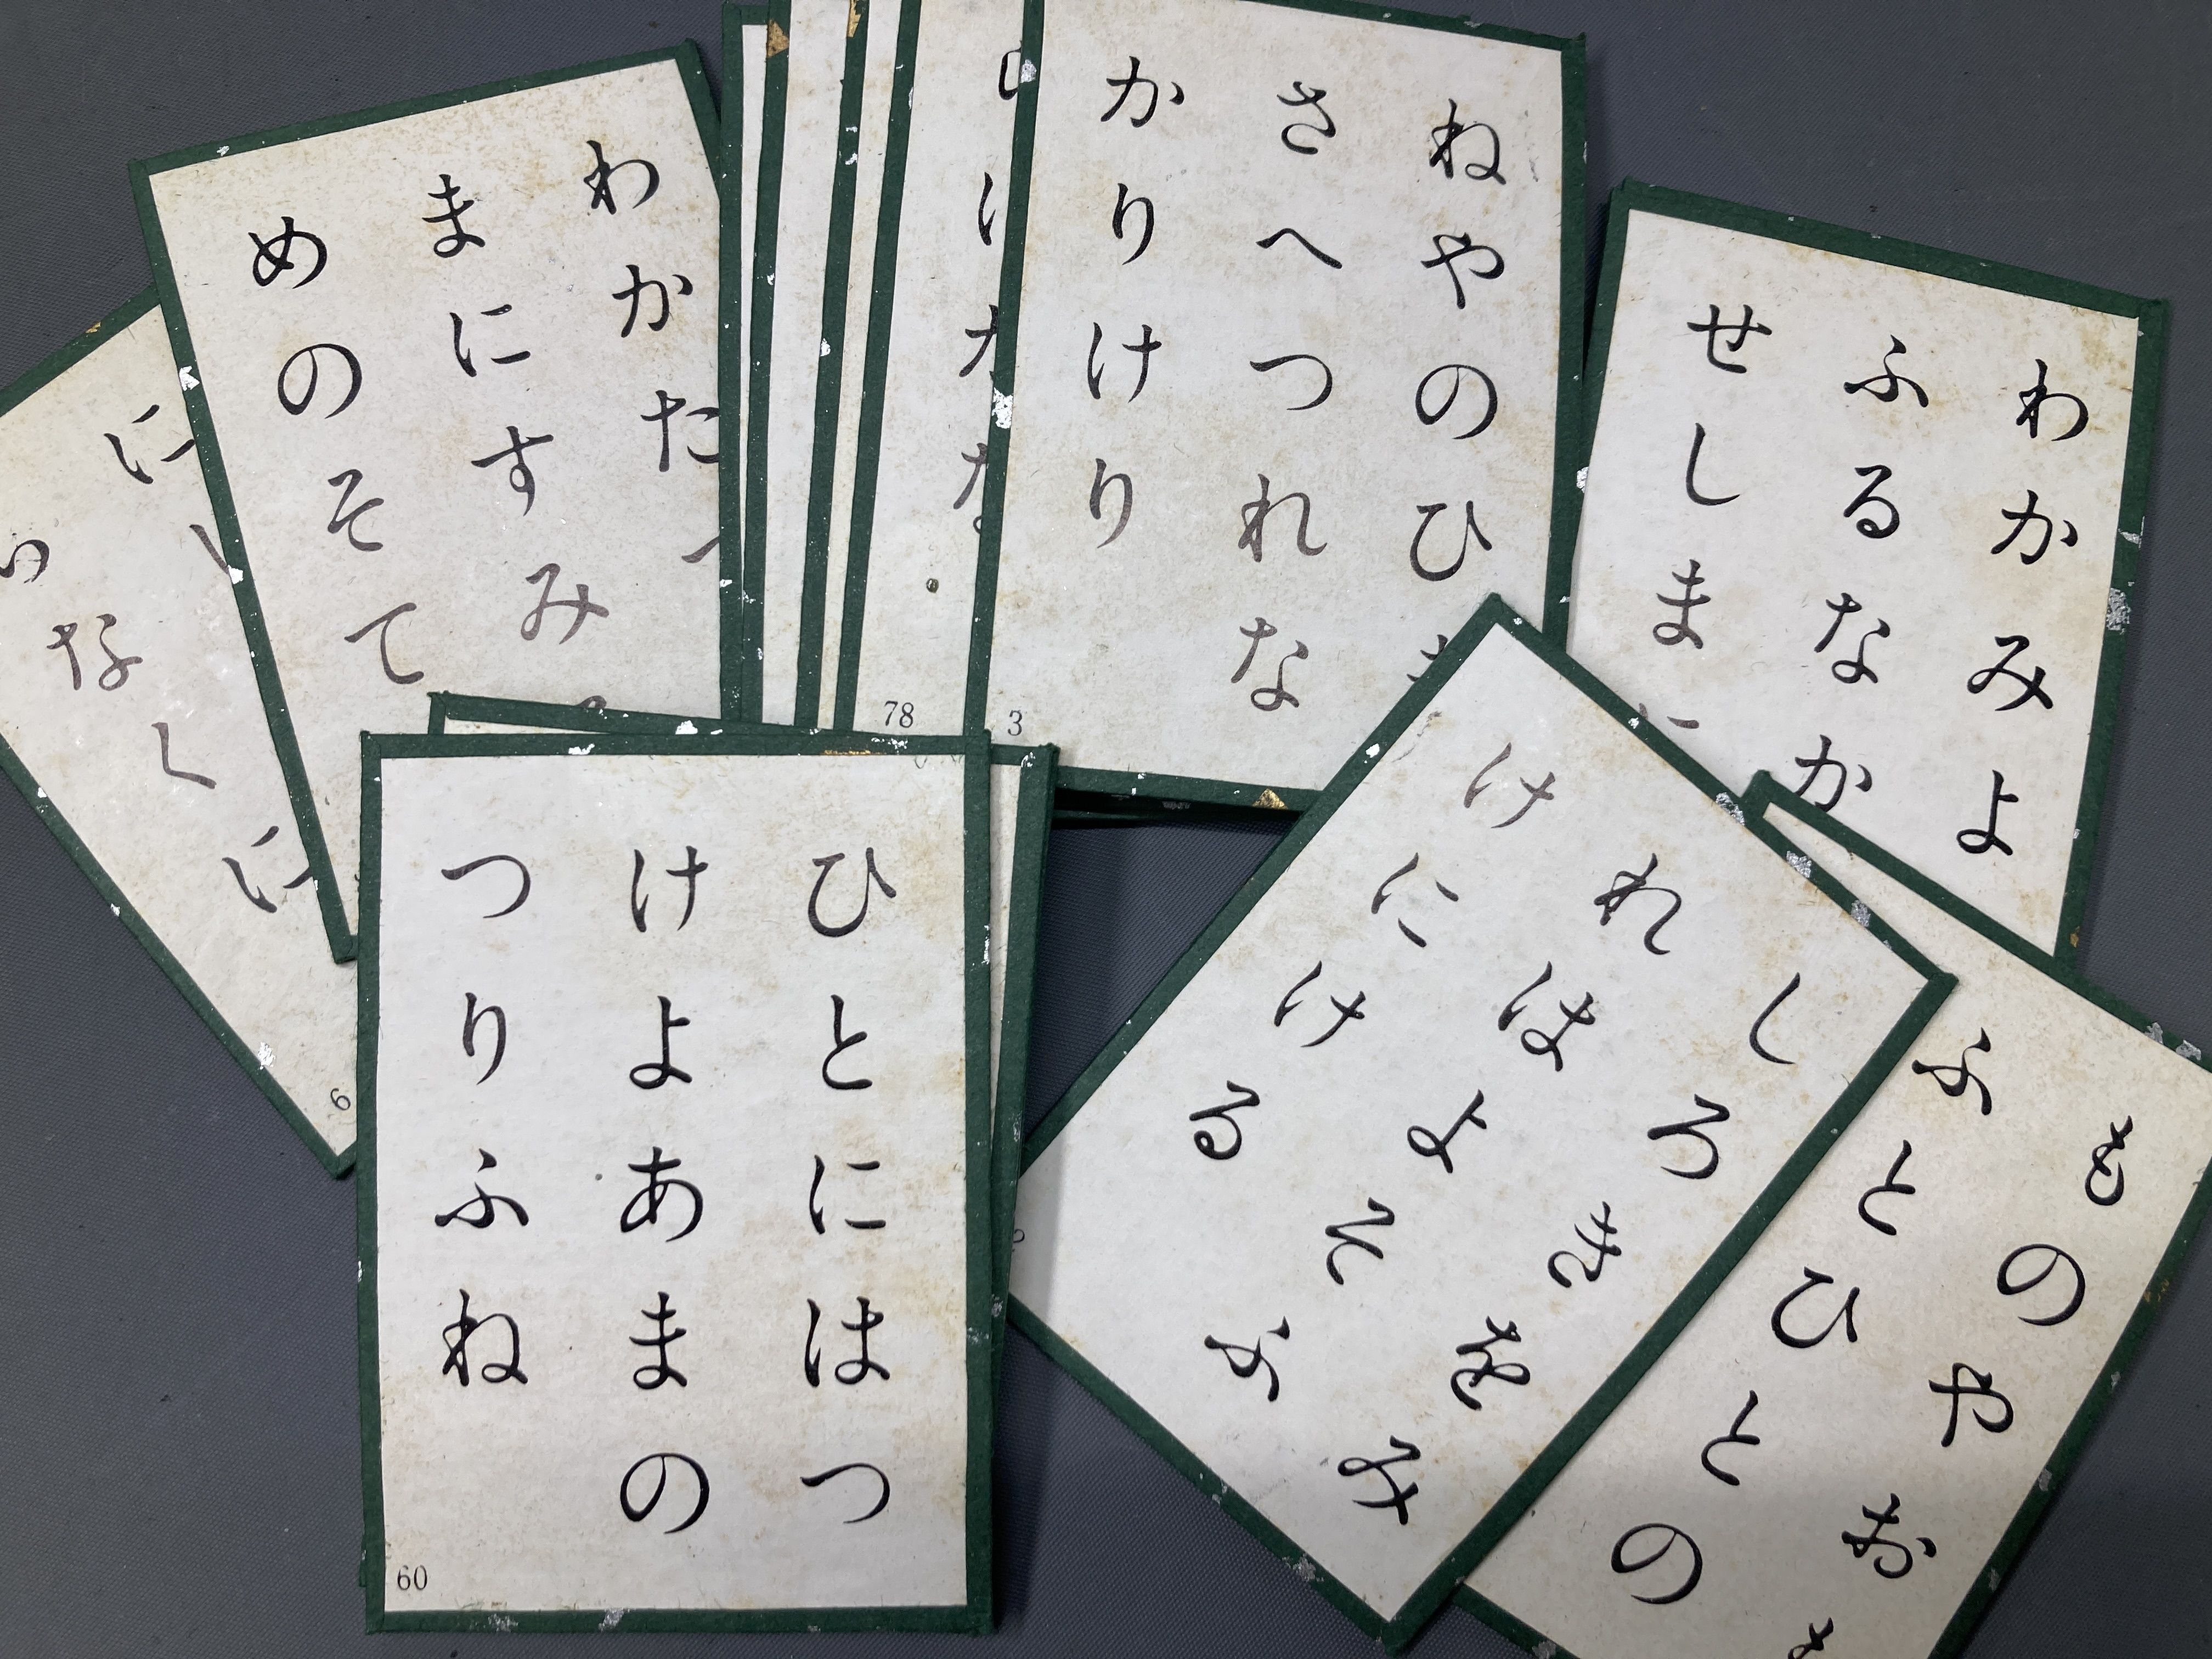 ひとにはつ
けよあまの
つりふね
60
しろきをみ
れはよそふ
けにける
ねやのひ
さへつれな
かりけり
3
78
わかみよ
ふるなか
せしまに
わかた
まにすみ
めのそて
ものやお
ふとひとの
に
なくに
6